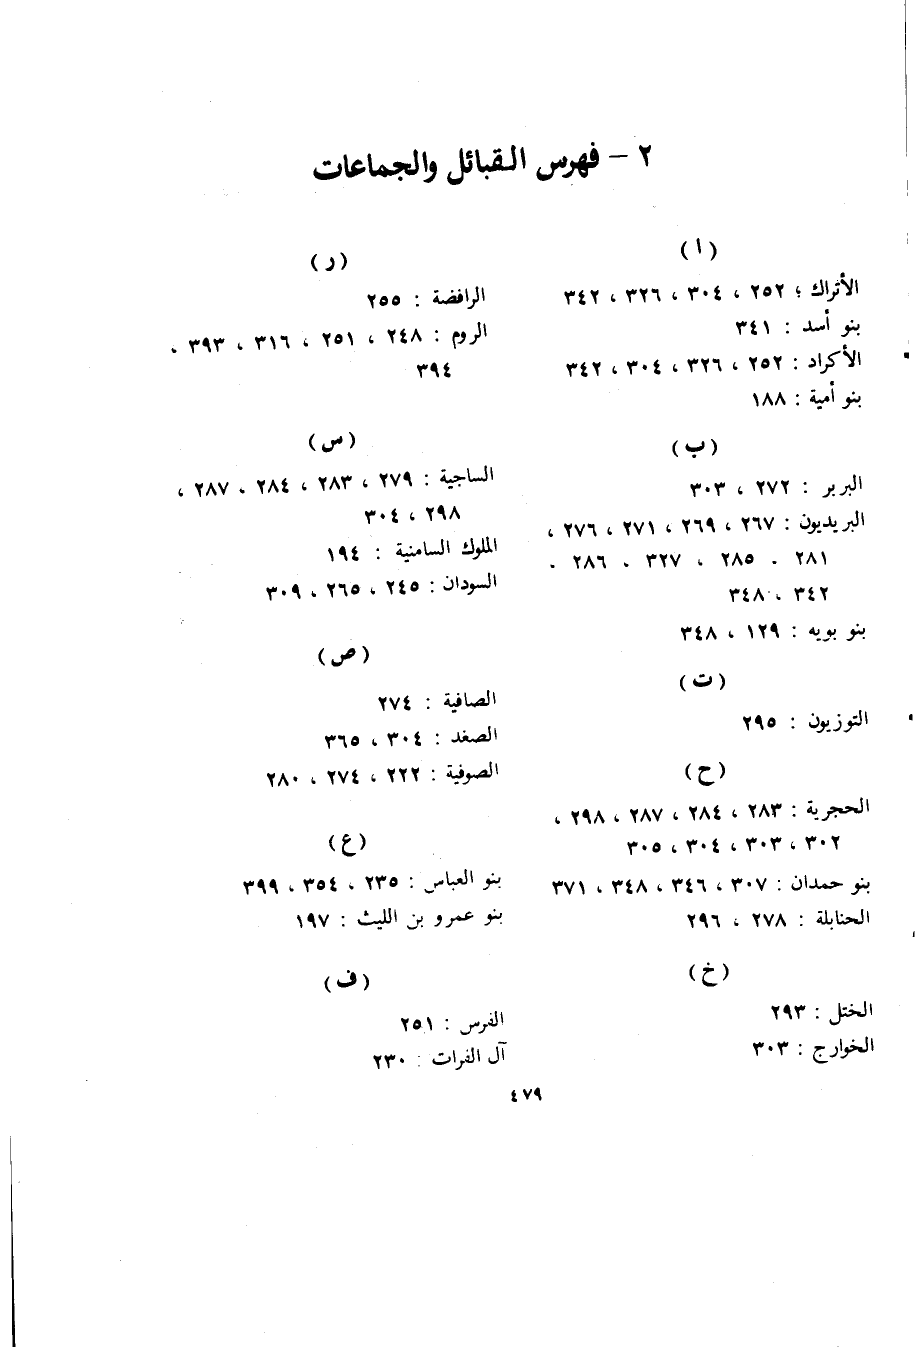 ٢ – فهرس القبائل والجماعات
(ا)
الأتراك ؛ ٢٥٢ ، ٣٠٤ ، ٣٢٦ ، ٣٤٢
بنو أسد : ٣٤١
الأكراد : ٢٥٢ ، ٣٢٦ ، ٣٠٤ ، ٣٤٢
بنو أمية : ١٨٨
(ب)
البربر : ٢٧٢ ، ٣٠٣
البريديون : ٢٦٧ ، ٢٦٩ ، ٢٧١ ، ٢٧٦ ،
٢٨١ . ٢٨٥ ، ٣٢٧ . ٢٨٦ .
٣٤٢ ، ٣٤٨
بنو بويه : ١٢٩ ، ٣٤٨
(ت)
التوزيون : ٢٩٥
(ح)
الحجرية : ٢٨٣ ، ٢٨٤ ، ٢٨٧ ، ٢٩٨ ،
٣٠٢ ، ٣٠٣ ، ٣٠٤ ، ٣٠٥
بنو حمدان : ٣٠٧ ، ٣٤٦ ، ٣٤٨ ، ٣٧١
الحنابلة : ٢٧٨ ، ٢٩٦
(خ)
الختل : ٢٩٣
الخوارج : ٣٠٣
(ر)
الرافضة : ٢٥٥
الروم : ٢٤٨ ، ٢٥١ ، ٣١٦ ، ٣٩٣ .
٣٩٤
(س)
الساجية : ٢٧٩ ، ٢٨٣ ، ٢٨٤ . ٢٨٧ ،
٢٩٨ ، ٣٠٤
الملوك السامنية : ١٩٤
السودان : ٢٤٥ ، ٢٦٥ ، ٣٠٩
(ص)
الصافية : ٢٧٤
الصغد : ٣٠٤ ، ٣٦٥
الصوفية : ٢٢٢ ، ٢٧٤ ، ٢٨٠
(ع)
بنو العباس : ٢٣٥ ، ٣٥٤ ، ٣٩٩
بنو عمرو بن الليث : ١٩٧
(ف)
الفرس : ٢٥١
آل الفرات : ٢٣٠
٤٧٩